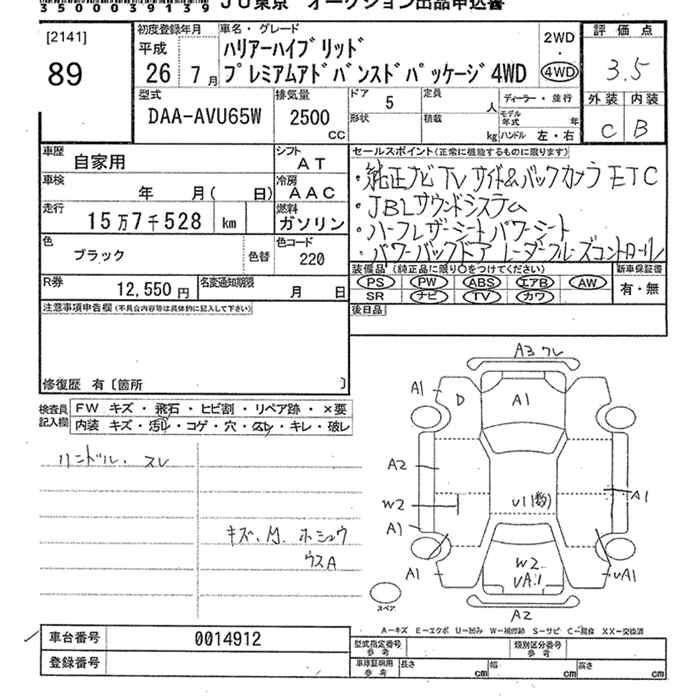 35000039139 JU東京 オークション出品申込書
[2141]
89
初度登録年月 車名・グレード
平成
26年7月
ハリアーハイブリッド
プレミアムアドバンスドパッケージ4WD
2WD
・
4WD
評価点
3.5
外装 内装
C B
型式 排気量 ドア 5 定員 人 ディーラー・並行
DAA-AVU65W 2500 CC 形状 積載 kg モデル年式 年
ハンドル 左・右
車歴 自家用 シフト AT
車検 年 月( 日) 冷房 AAC
走行 15万7千528 km 燃料 ガソリン
色 ブラック 色替 色コード 220
R券 12,550円 名変通知期限 月 日
セールスポイント(正常に機能するものに限ります)
・純正ナビTV サイド&バックカメラ ETC
・JBLサウンドシステム
・ハーフレザーシート パワーシート
・パワーバックドア レーダークルーズコントロール
装備品(純正品に限り○をつけてください) 新車保証書
PS PW ABS エアB AW 有・無
SR ナビ TV カワ
後日品
注意事項申告欄(不具合内容等は具体的に記入して下さい)
修復歴 有〔箇所 〕
検査員記入欄
FW キズ・飛石・ヒビ割・リペア跡・×要
内装 キズ・汚レ・コゲ・穴・スレ・キレ・破レ
ハンドル・スレ
キズ、
ホシュウ
ウスA
A3 ワレ
A1 D A1
A2
W2 U1(数) A1
A1
A1 W2 UA1 UA1
A2
スペア
A-キズ E-エクボ U-凹み W-補修跡 S-サビ C-腐食 XX-交換済
車台番号 0014912
登録番号
型式指定番号 参考 類別区分番号 参考
車庫証明用 参考 長さ cm 幅 cm 高さ cm